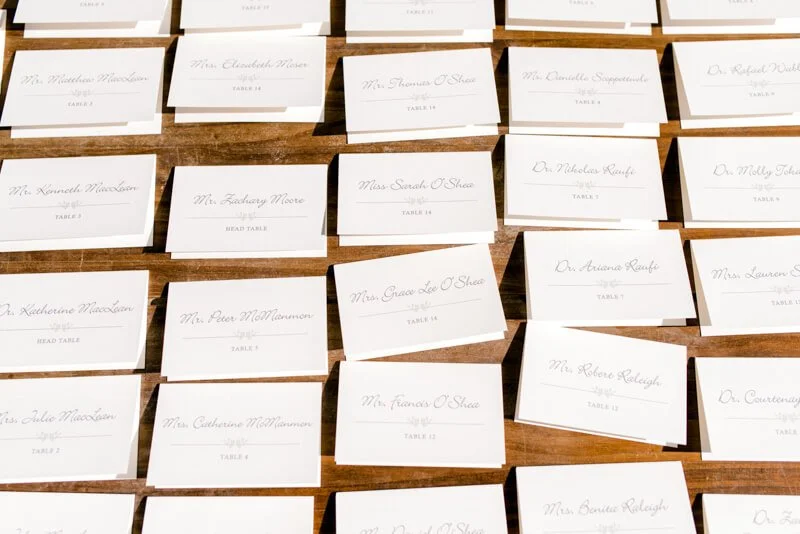 TABLE
Mr. Matthew MacLean
TABLE 2
Mr. Kenneth MacLean
TABLE 3
Dr. Katherine MacLean
HEAD TABLE
Mrs. Julie MacLean
TABLE 2
TABLE
Mrs. Elizabeth Moser
TABLE 14
Mr. Zachary Moore
HEAD TABLE
Mr. Peter McManmon
TABLE 5
Mrs. Catherine McManmon
TABLE 4
TABLE
Mr. Thomas O'Shea
TABLE 14
Miss Sarah O'Shea
TABLE 14
Mrs. Grace Lee O'Shea
TABLE 14
Mr. Francis O'Shea
TABLE 12
Mr. Daniel O'Shea
TABLE
Ms. Danielle Scappaticcio
TABLE 4
Dr. Nikolas Raufi
TABLE 7
Dr. Ariana Raufi
TABLE 7
Mr. Robert Raleigh
TABLE 12
Mrs. Benita Raleigh
TABLE
Dr. Rafael
TABLE
Dr. Molly
TABLE
Mrs. Lauren
TABLE
Dr. Courtenay
TABLE
Dr.